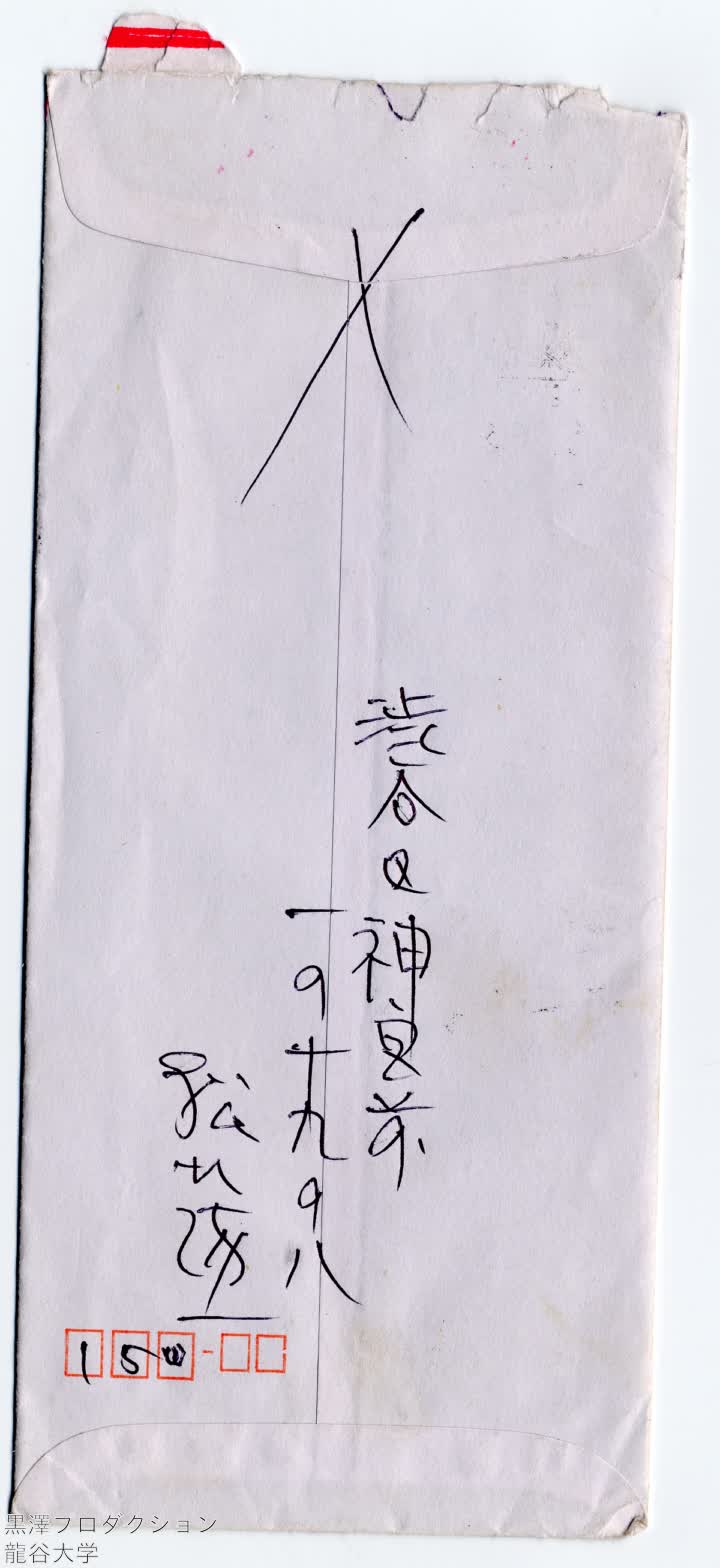 〆
渋谷区神宮前
一の十九の八
松江陽一
150
黒澤プロダクション
龍谷大学